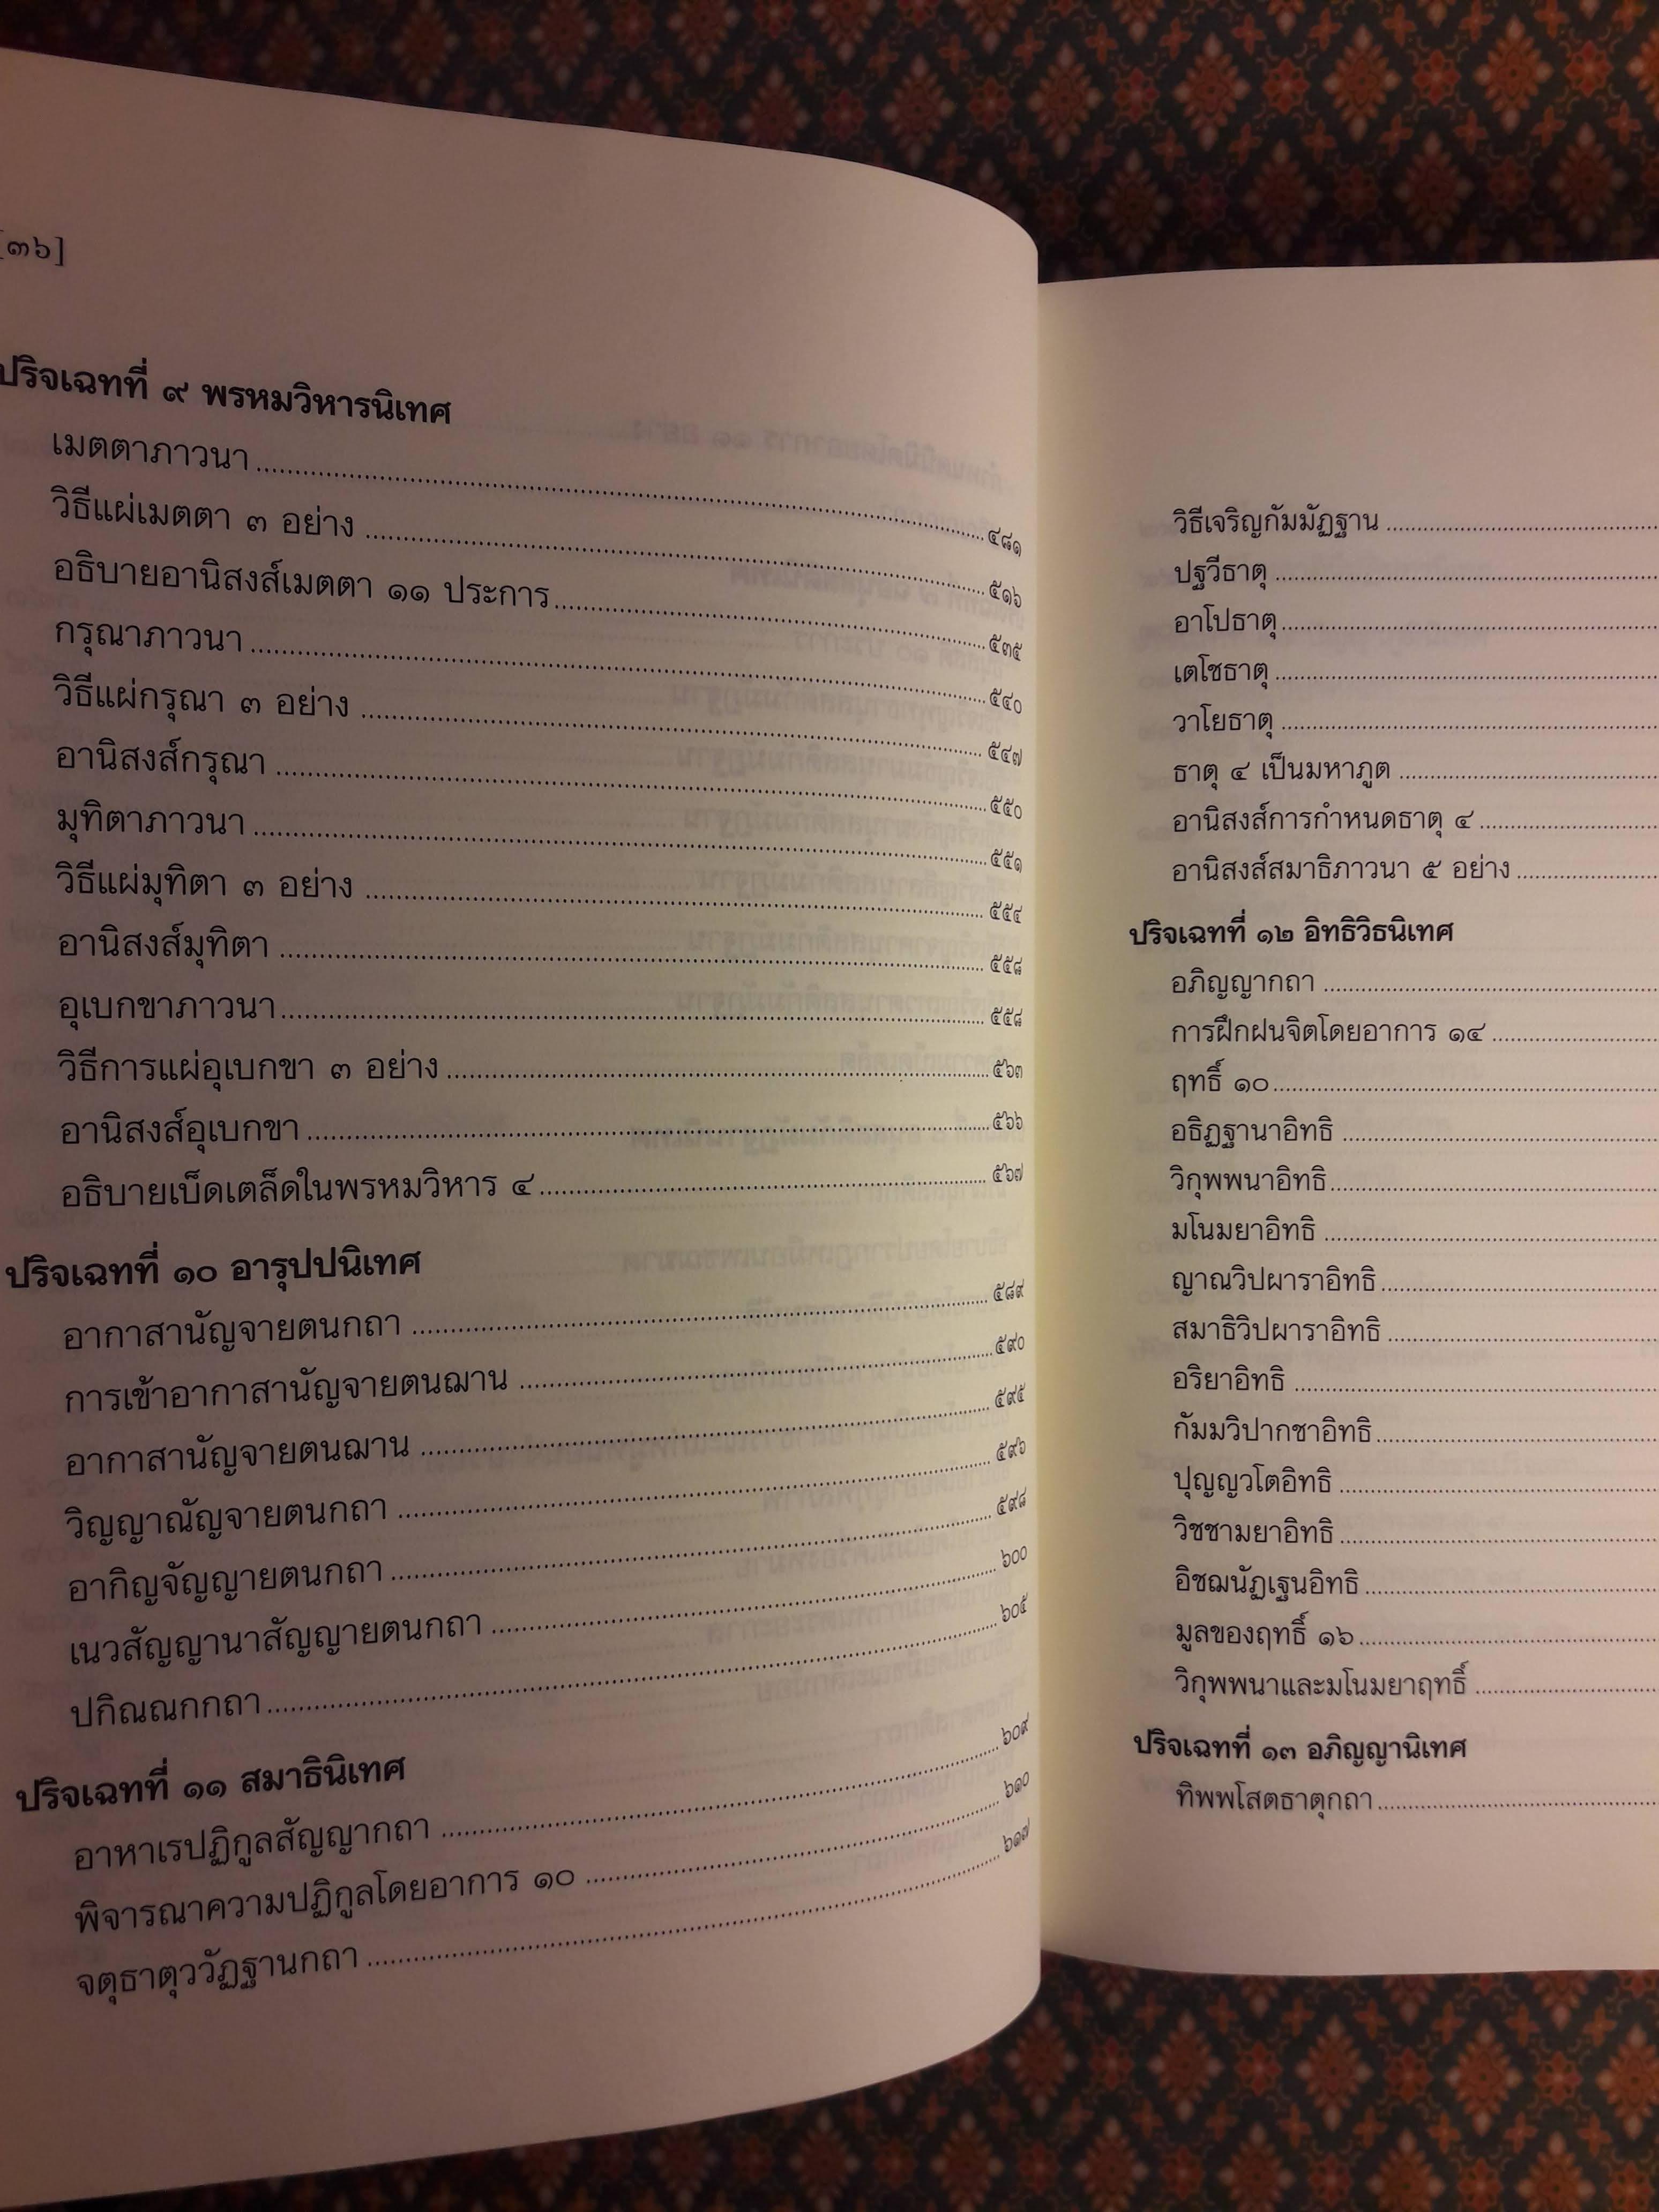 [๓๖]
ปริจเฉทที่ ๙ พรหมวิหารนิเทศ
เมตตาภาวนา ๔๘๑
วิธีแผ่เมตตา ๓ อย่าง ๕๑๖
อธิบายอานิสงส์เมตตา ๑๑ ประการ ๕๓๕
กรุณาภาวนา ๕๔๐
วิธีแผ่กรุณา ๓ อย่าง ๕๔๗
อานิสงส์กรุณา ๕๕๐
มุทิตาภาวนา ๕๕๑
วิธีแผ่มุทิตา ๓ อย่าง ๕๕๔
อานิสงส์มุทิตา ๕๕๘
อุเบกขาภาวนา ๕๕๘
วิธีการแผ่อุเบกขา ๓ อย่าง ๕๖๓
อานิสงส์อุเบกขา ๕๖๖
อธิบายเบ็ดเตล็ดในพรหมวิหาร ๔ ๕๖๗
ปริจเฉทที่ ๑๐ อารุปปนิเทศ
อากาสานัญจายตนกถา ๕๘๙
การเข้าอากาสานัญจายตนฌาน ๕๙๐
อากาสานัญจายตนฌาน ๕๙๕
วิญญาณัญจายตนกถา ๕๙๖
อากิญจัญญายตนกถา ๕๙๘
เนวสัญญานาสัญญายตนกถา ๖๐๐
ปกิณณกกถา ๖๐๕
ปริจเฉทที่ ๑๑ สมาธินิเทศ
อาหาเรปฏิกูลสัญญากถา ๖๐๙
พิจารณาความปฏิกูลโดยอาการ ๑๐ ๖๑๐
จตุธาตุววัฏฐานกถา ๖๑๗
วิธีเจริญกัมมัฏฐาน
ปฐวีธาตุ
อาโปธาตุ
เตโชธาตุ
วาโยธาตุ
ธาตุ ๔ เป็นมหาภูต
อานิสงส์การกำหนดธาตุ ๔
อานิสงส์สมาธิภาวนา ๕ อย่าง
ปริจเฉทที่ ๑๒ อิทธิวิธนิเทศ
อภิญญากถา
การฝึกฝนจิตโดยอาการ ๑๔
ฤทธิ์ ๑๐
อธิฏฐานาอิทธิ
วิกุพพนาอิทธิ
มโนมยาอิทธิ
ญาณวิปผาราอิทธิ
สมาธิวิปผาราอิทธิ
อริยาอิทธิ
กัมมวิปากชาอิทธิ
ปุญญวโตอิทธิ
วิชชามยาอิทธิ
อิชฌนัฏเฐนอิทธิ
มูลของฤทธิ์ ๑๖
วิกุพพนาและมโนมยาฤทธิ์
ปริจเฉทที่ ๑๓ อภิญญานิเทศ
ทิพพโสตธาตุกถา